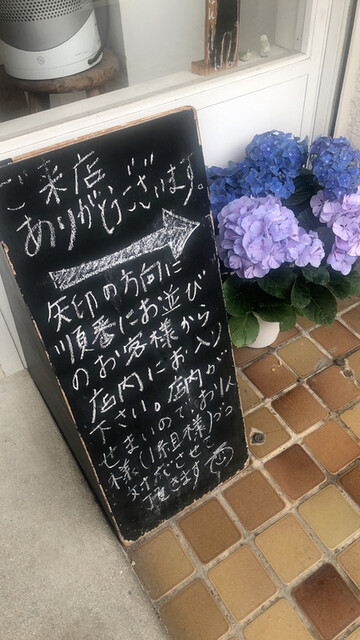 ご来店
ありがとうございます。
矢印の方向に
順番にお並び
のお客様から
店内にお入り
下さい。店内が
せまいのでお1人
様(1組様)づつ
対応させて
頂きます